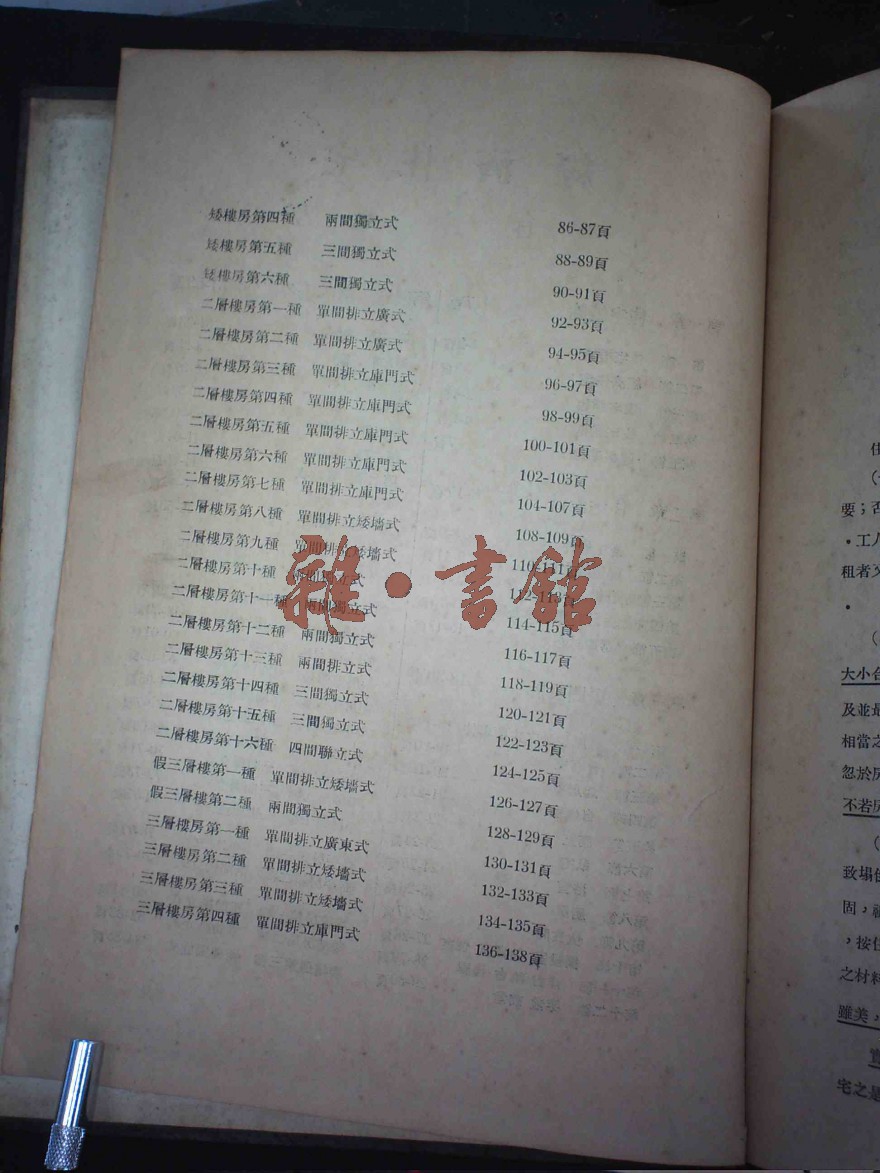 矮樓房第四種 兩間獨立式 86-87頁
矮樓房第五種 三間獨立式 88-89頁
矮樓房第六種 三間獨立式 90-91頁
二層樓房第一種 單間排立廣式 92-93頁
二層樓房第二種 單間排立廣式 94-95頁
二層樓房第三種 單間排立庫門式 96-97頁
二層樓房第四種 單間排立庫門式 98-99頁
二層樓房第五種 單間排立庫門式 100-101頁
二層樓房第六種 單間排立庫門式 102-103頁
二層樓房第七種 單間排立庫門式 104-107頁
二層樓房第八種 單間排立矮墻式 108-109頁
二層樓房第九種 單間排立矮墻式 110-111頁
二層樓房第十種 兩間獨立式 112-113頁
二層樓房第十一種 兩間獨立式 114-115頁
二層樓房第十二種 兩間獨立式 116-117頁
二層樓房第十三種 兩間排立式 118-119頁
二層樓房第十四種 三間獨立式 120-121頁
二層樓房第十五種 三間獨立式 122-123頁
二層樓房第十六種 四間聯立式 124-125頁
假三層樓第一種 單間排立矮墻式 126-127頁
假三層樓第二種 兩間獨立式 128-129頁
三層樓房第一種 單間排立廣東式 130-131頁
三層樓房第二種 單間排立矮墻式 132-133頁
三層樓房第三種 單間排立矮墻式 134-135頁
三層樓房第四種 單間排立庫門式 136-138頁
雜·書館
要；否
·工人
租者父
大小合
及並最
相當之
忽於房
不若房
致塌倒
固，祇
，按住
之材料
雖美，
實
宅之是